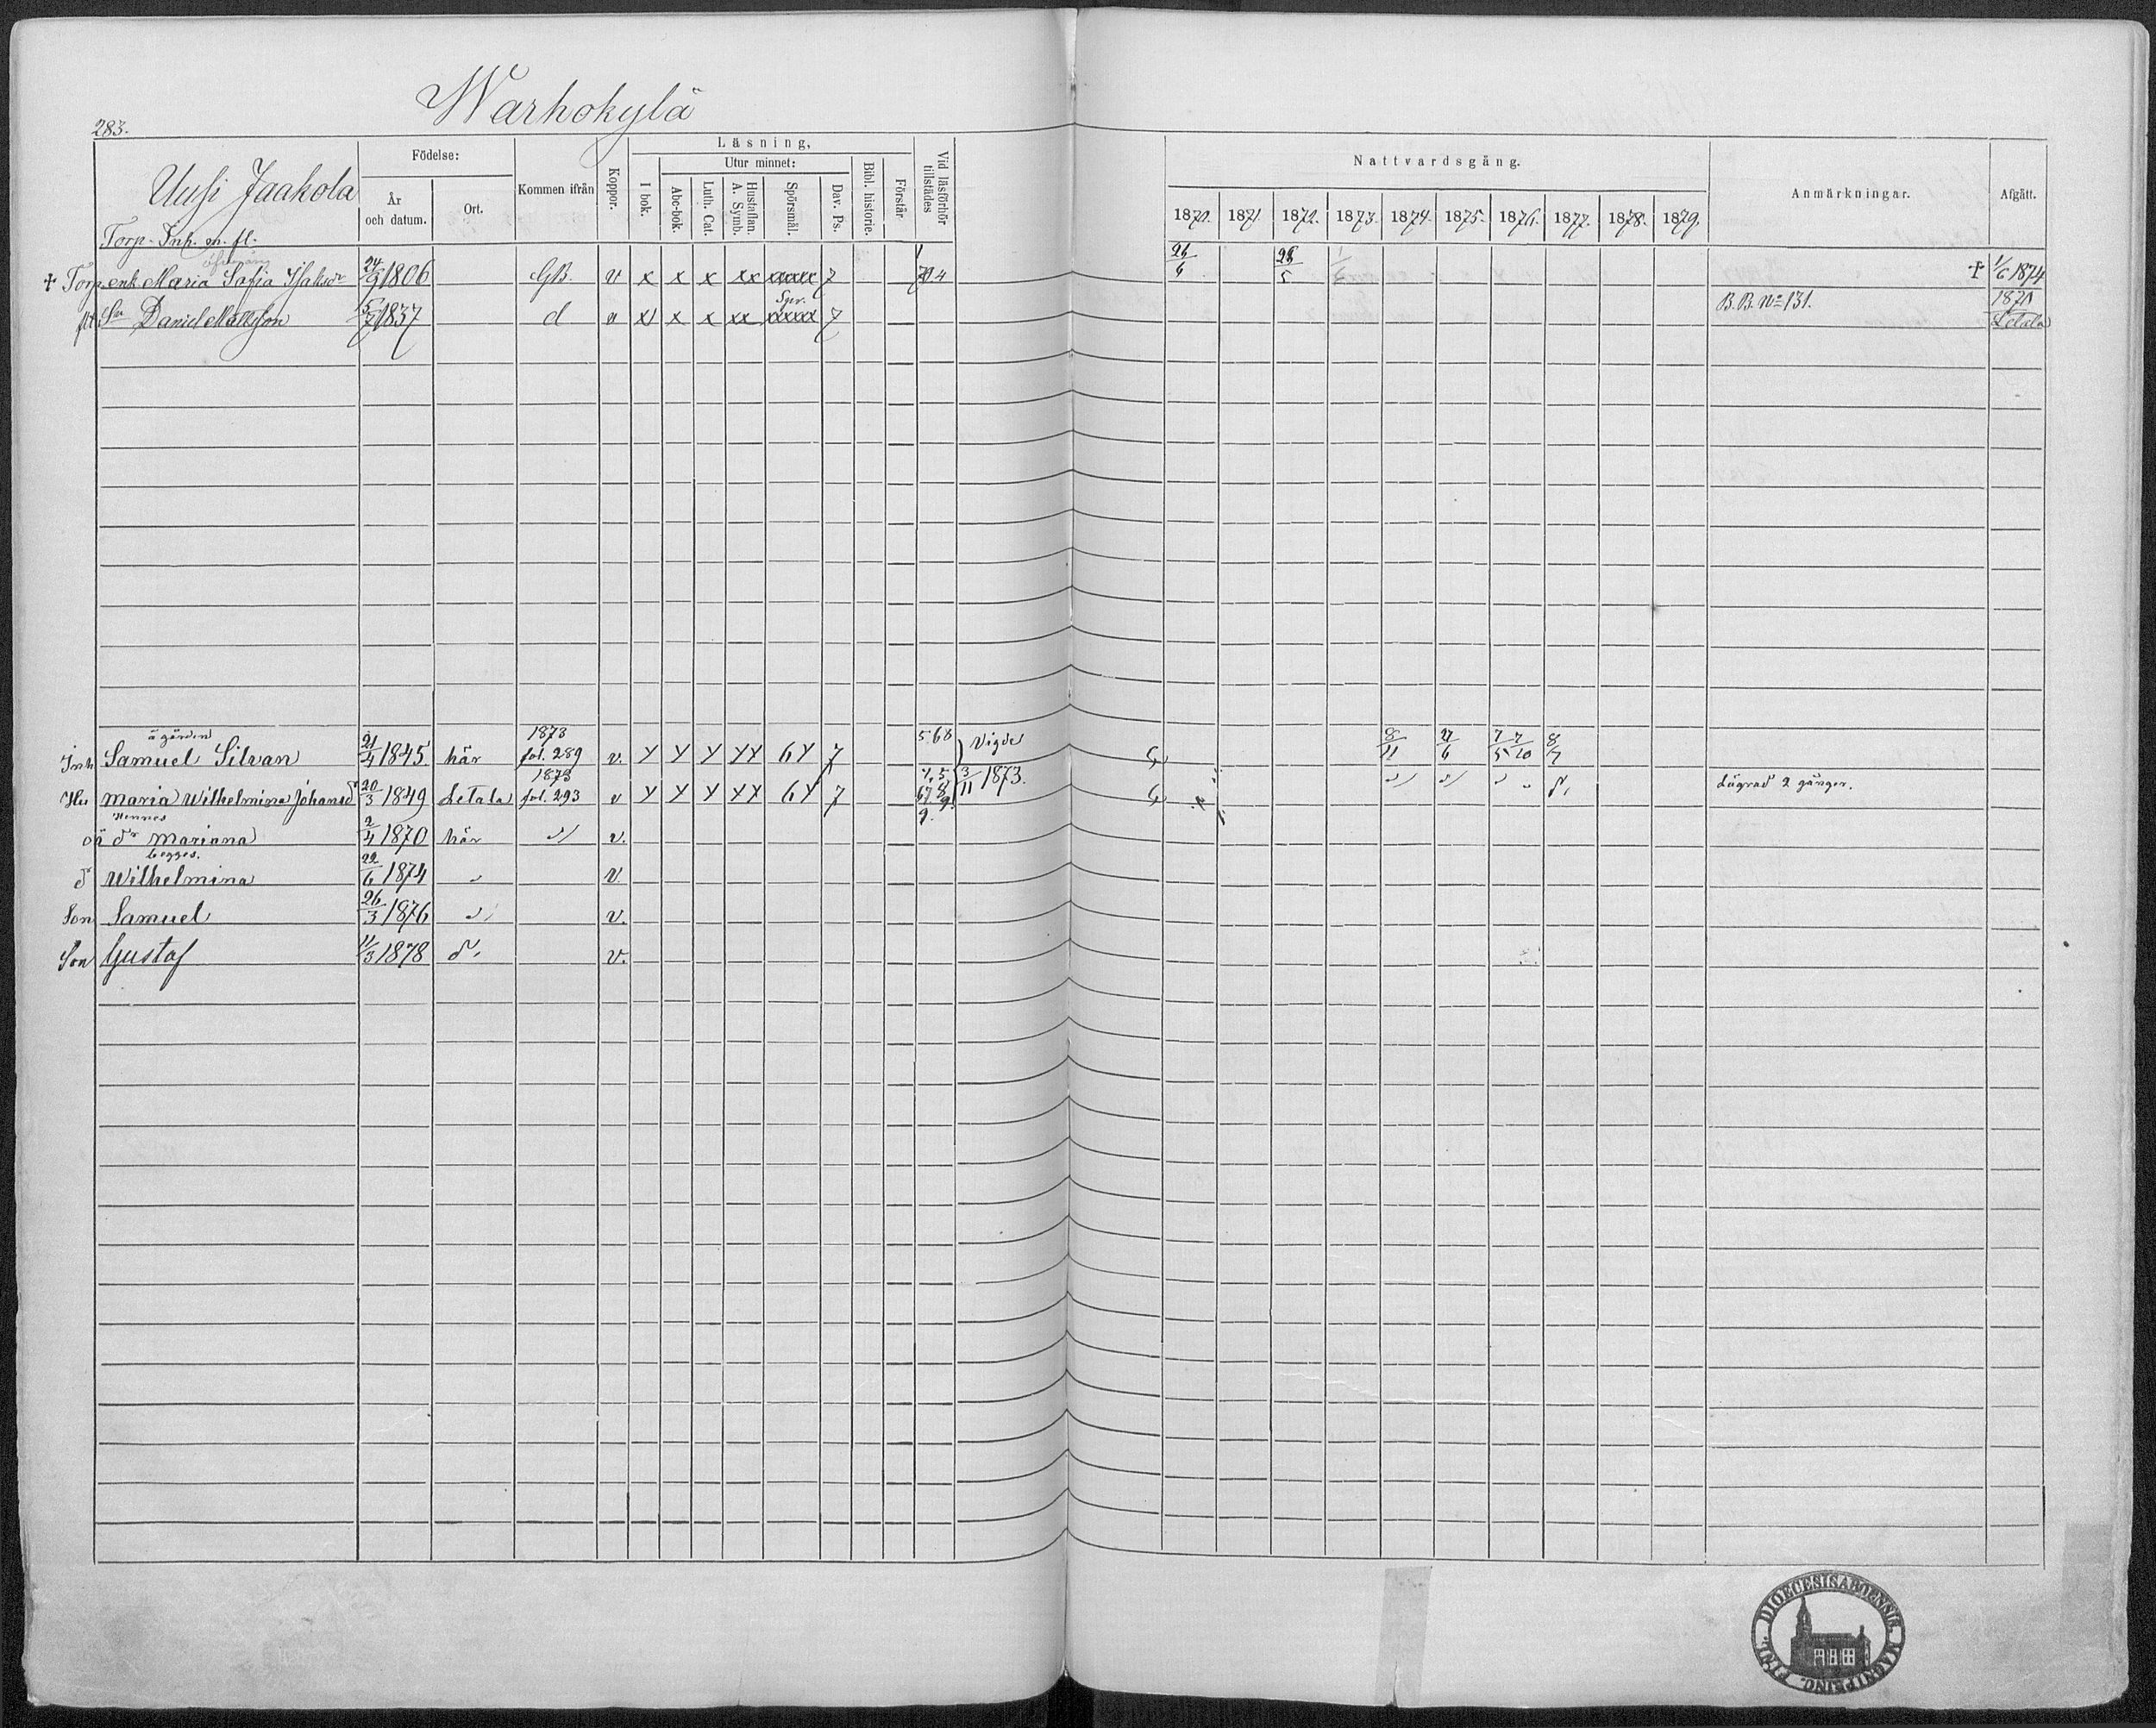 Warhokylä
283.
Uusi Jaakola
Torp. Inh. m. fl.
Födelse:
År och datum.
Ort.
Kommen ifrån
Koppor.
Läsning,
I bok.
Utur minnet:
Abc-bok.
Luth. Cat.
Hustaflan. A. Symb.
Spörsmål.
Dav. Ps.
Bibl. historie.
Förstår
Vid läsförhör tillstädes
Nattvardsgång.
1870. 1871 1872. 1873. 1874. 1875. 1876. 1877. 1878. 1879.
Anmärkningar.
Afgått.
+ Torp. enk. Maria Safia Isaksdr 24/9 1806 GB. v x x x xx xxxxx 7 26/6 5 + 1/6 1874
Sn Daniel Mattsson 5/7 1837 d v x x x xx xxxxx 7 B.B. No 131. 1870 Letala
å gården 1873
Inh Samuel Silvan 21/4 1845 här fol. 289 v. Y Y Y YY 6Y 7 5 68 Vigde 8/11 6 7/5 7/10 8/7
1873
Hu Maria Wilhelmina Johansd 20/3 1849 Letala fol. 293 v Y Y Y YY 6Y 7 3/11 1873. Lägrad 2 gånger.
Hennes
oä dr Mariana 2/4 1870 här v.
begges.
d Wilhelmina 22/6 1874 v.
Son Samuel 26/3 1876 v.
Son Gustaf 11/3 1878 d. v.
DIOECESIS ABOENNIS. MAGNI PRING. FINL.